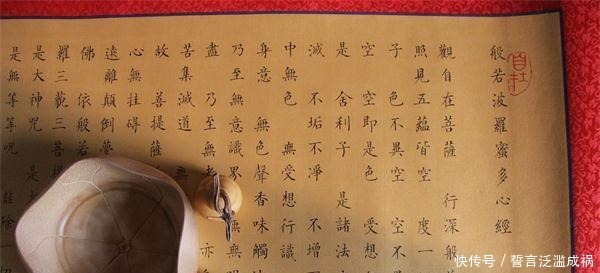 般若波羅蜜多心經
觀自在菩薩 行深般
照見五蘊皆空 度一
子 色不異空 空不
空 空即是色 受想
是 舍利子 是諸法
滅 不垢不淨 不增
中無色 無受想行識
身意 無色聲香味觸
乃至無意識界 無無
盡 乃至無老 亦
苦集滅道 無
故 菩提薩
心無挂礙
遠離顛倒夢
佛 依般若
羅三藐三菩提
是大神咒 是大
是無等等呪 能除一
快传号/誓言泛滥成祸